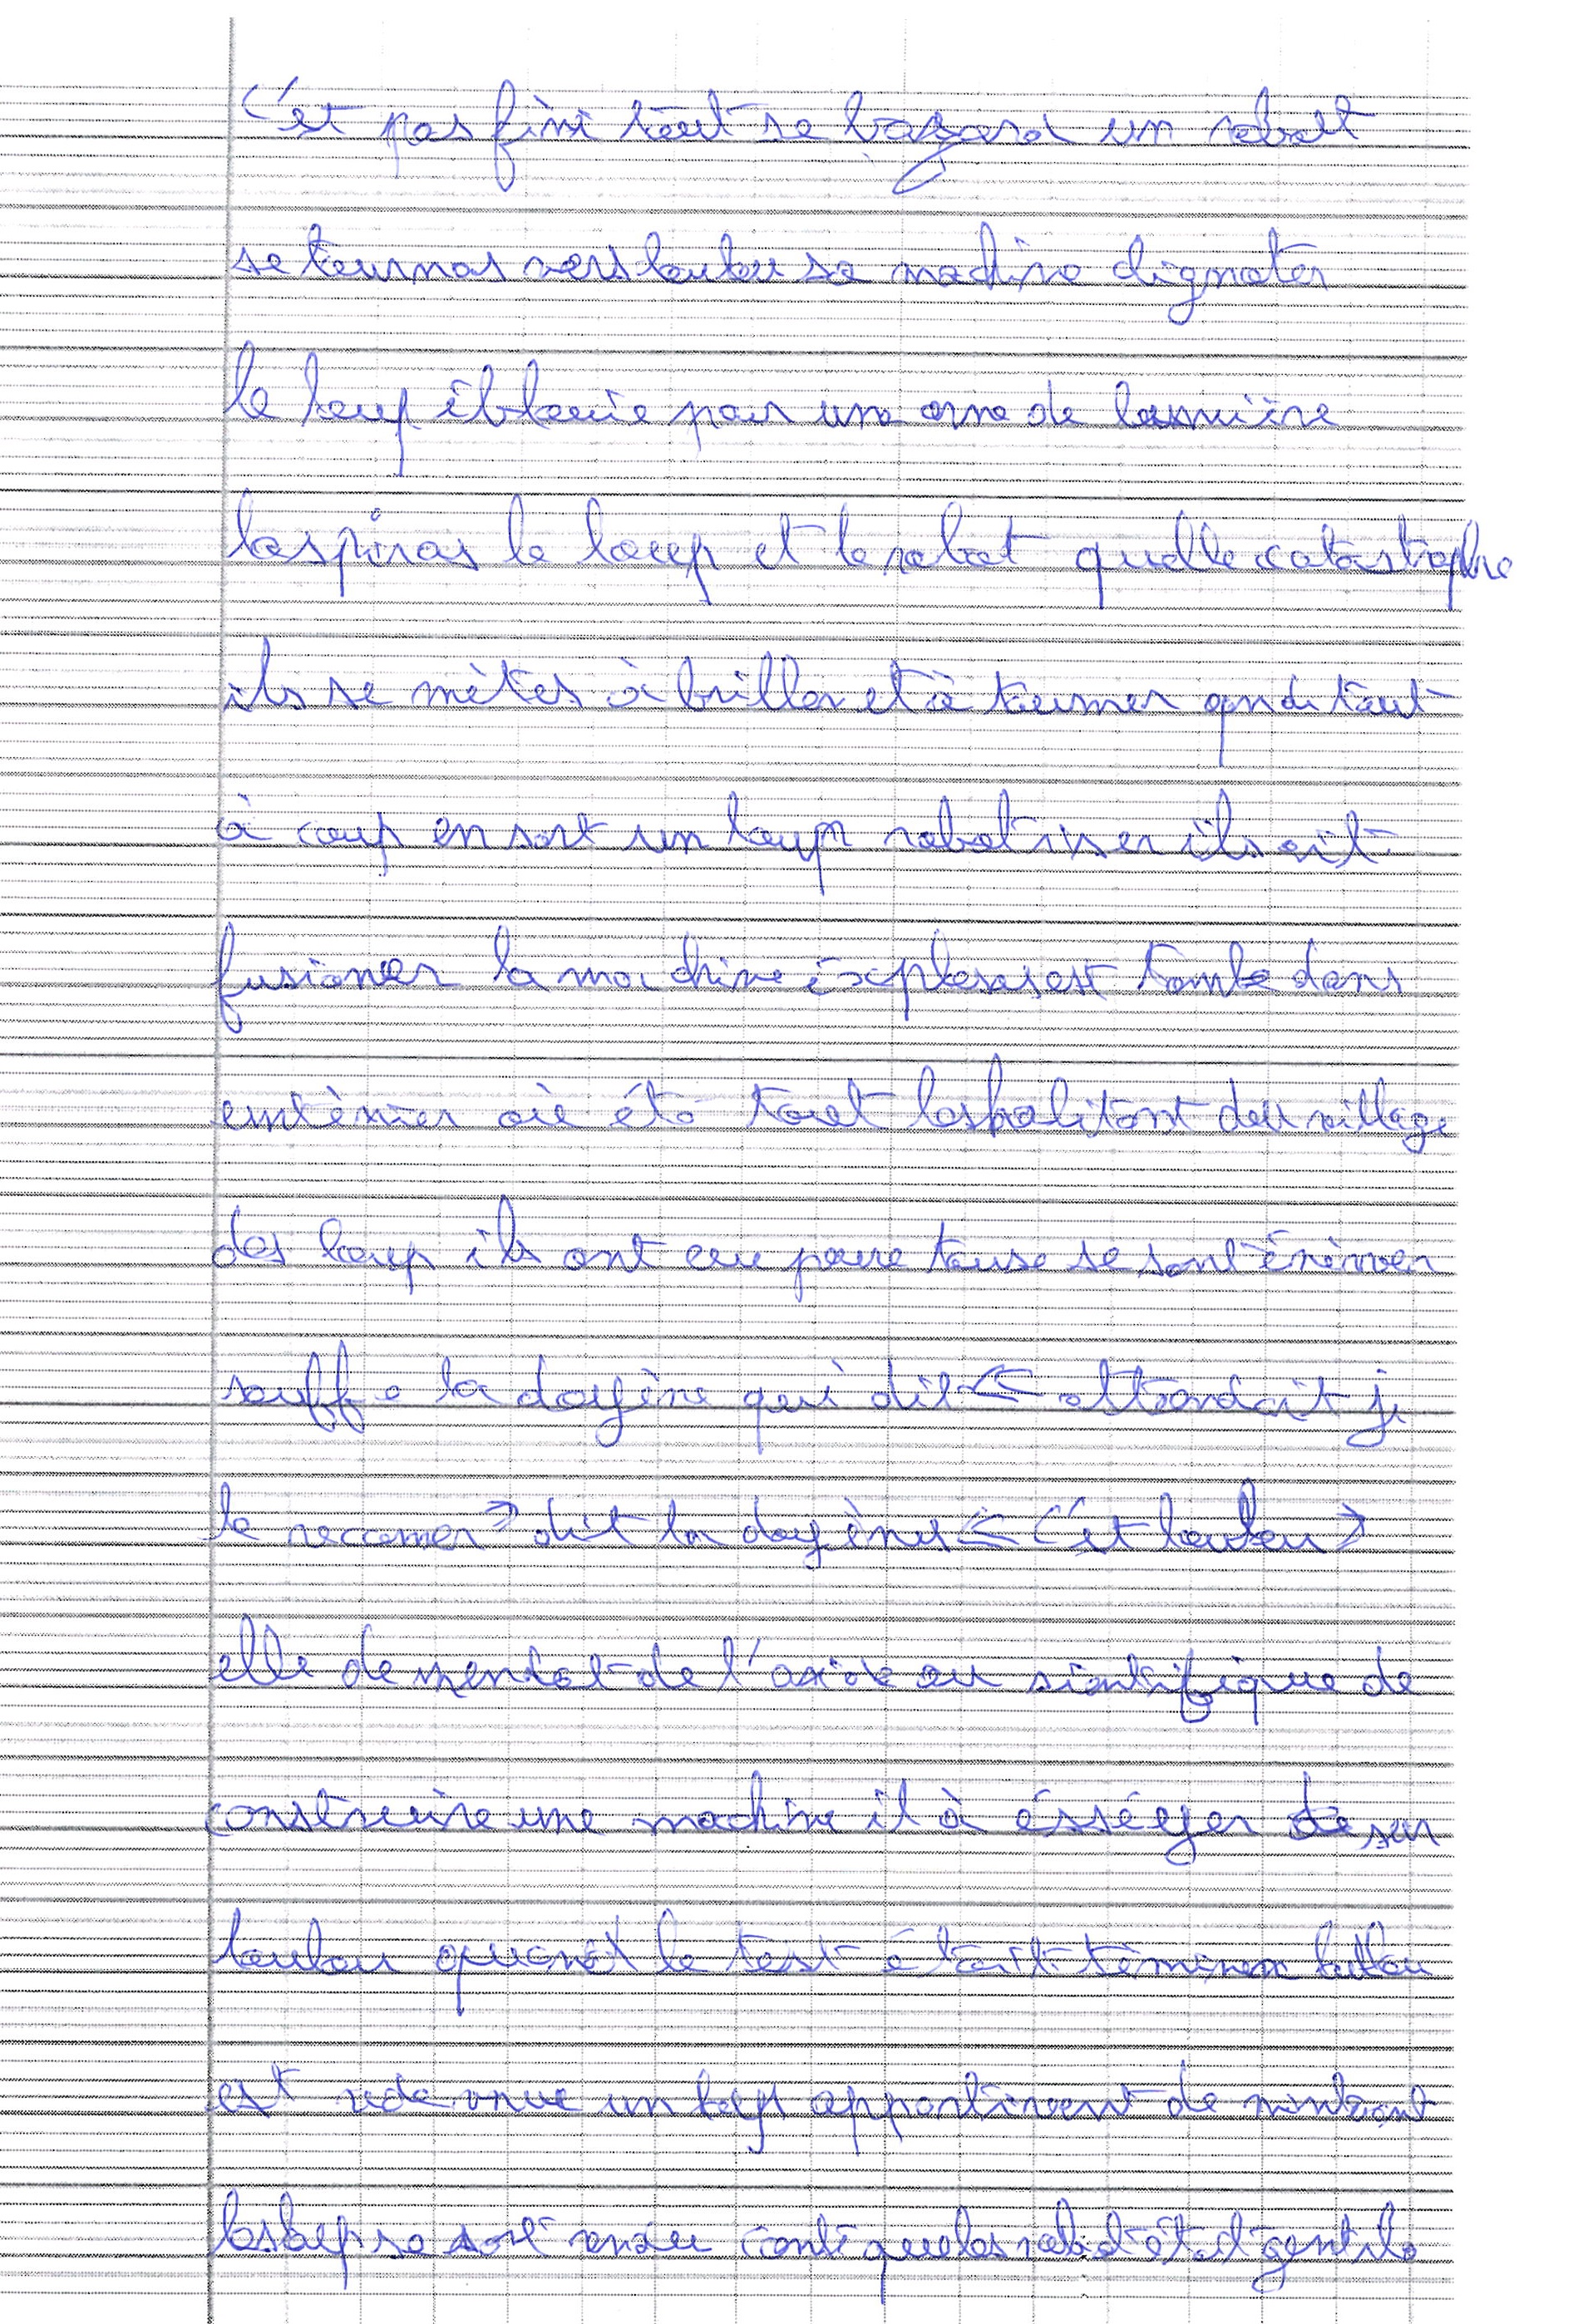 C'et pas fini tout se bazard un robot
se tournas vers loulou sa machine clignoter
le loup éblouie par une arme de lumière
laspiras le loup et le robot quelle catastrophe
ils se mètes à briller et à tourner qandi tout
à coup en sort un loup robotiser ils oit
fusioner la machine éxplosas est tombe dans
entèrier où été tout leshabitant deu village
des loup ils ont eu peure touse se sont érèmer
souff e la doyène qui dit « attandait je
le reconer » dit la doyène « C'et loulou »
elle de mendat de l'aide au sientifique de
construire une machine il à ésséyer de sur
loulou quand le test était têminer loulou
est rede venue un loup appartirent de mintenant
lesloup se sont rendu conte queles robot ét gentils